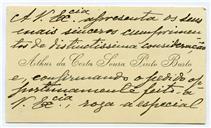 A V. Ex.cia apresenta os seus
mais sinceros cumprimen-
tos de distinctissima consideração
Arthur da Costa Sousa Pinto Basto
e, confirmando o pedido op-
portunamente feito a
V. Ex.cia, roga a especial